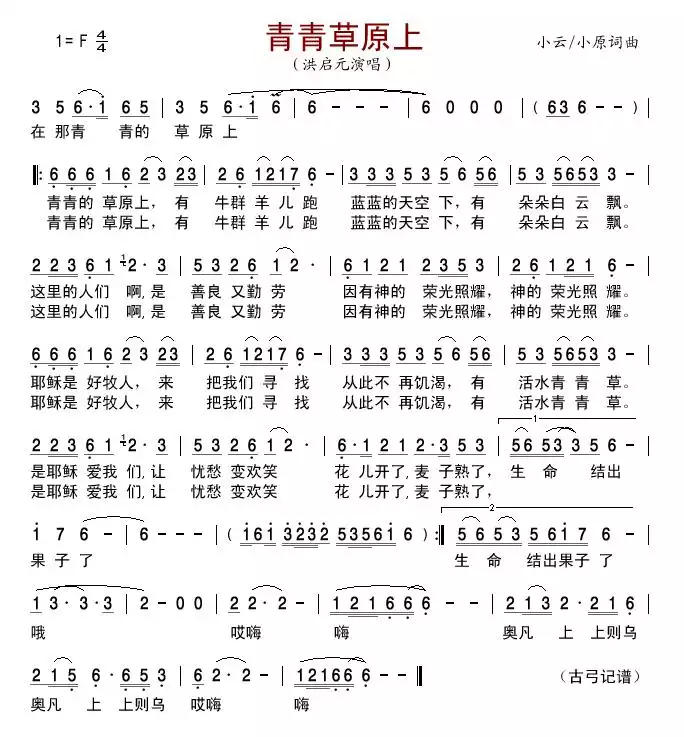 1= F 4/4 青青草原上 小云/小原词曲
（洪启元演唱）
3 5 6·i 6 5 | 3 5 6·i 6 | 6 - - - | 6 0 0 0 | ( 63 6 - - )
在 那青 青的 草 原 上
‖: 6 6 6 1 6 2 3 23 | 2 6 1217 6 - | 3 3 3 5 3 5 6 56 | 5 3 5653 3 - |
青青的 草原上，有 牛群 羊 儿 跑 蓝蓝的天空 下，有 朵朵白 云 飘。
青青的 草原上，有 牛群 羊 儿 跑 蓝蓝的天空 下，有 朵朵白 云 飘。
2 2 3 6 1 1 2· 3 | 5 3 2 6 1 2· | 6 1 2 1 2 3 5 3 | 2 6 1 2 1 6 - |
这里的人们 啊,是 善良 又勤 劳 因有神的 荣光照耀，神的 荣光照 耀。
这里的人们 啊,是 善良 又勤 劳 因有神的 荣光照耀，神的 荣光照 耀。
6 6 6 1 6 2 3 23 | 2 6 1217 6 - | 3 3 3 5 3 5 6 56 | 5 3 5653 3 - |
耶稣是 好牧人，来 把我们 寻 找 从此不 再饥渴，有 活水青 青 草。
耶稣是 好牧人，来 把我们 寻 找 从此不 再饥渴，有 活水青 青 草。
1
2 2 3 6 1 1 2· 3 | 5 3 2 6 1 2· | 6 1 2 1 2 3 5 3 | 56 53 3 5 6 - |
是耶稣 爱我 们,让 忧愁 变欢笑 花 儿开了,麦 子熟了， 生 命 结出
是耶稣 爱我 们,让 忧愁 变欢笑 花 儿开了,麦 子熟了，
2
i 7 6 - | 6 - - - | ( i6i 3232 53561 6 ) :‖ 5 6 5 3 5 6i7 6 - |
果 子 了 生 命 结出果子了
1 3· 3· 3 | 2 - 0 0 | 2 2· 2 - | 1 2 1 6 6 6 - - | 2 2 1 3 2· 2 1 6 |
哦 哎嗨 嗨 奥凡 上 上则乌
2 1 5 6· 6· 5 3 | 6 2· 2 - | 12166 6 - - ‖ （古弓记谱）
奥凡 上 上则乌 哎嗨 嗨